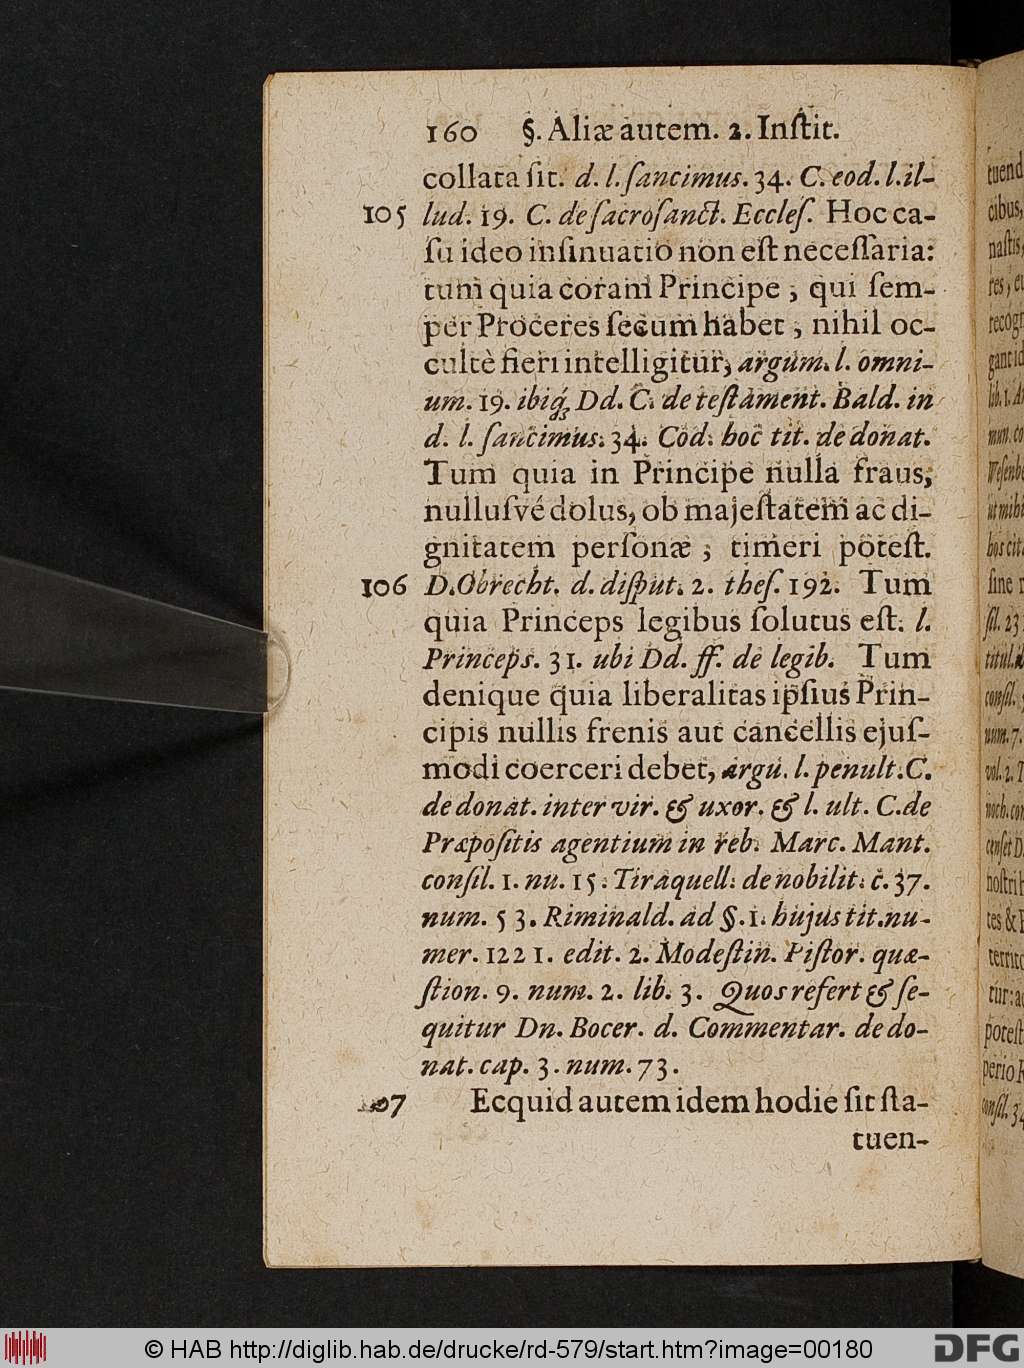 160 §. Aliæ autem. 2. Inſtit.
collata ſit. d. l. ſancimus. 34. C. eod. l. il-
105 lud. 19. C. de ſacroſanct. Eccleſ. Hoc ca-
ſu ideo inſinuatio non eſt neceſſaria:
tum quia coram Principe, qui ſem-
per Proceres ſecum habet, nihil oc-
cultè fieri intelligitur, argum. l. omni-
um. 19. ibiq́; Dd. C. de teſtament. Bald. in
d. l. ſancimus. 34. Cod. hoc tit. de donat.
Tum quia in Principe nulla fraus,
nulluſvé dolus, ob majeſtatem ac di-
gnitatem perſonæ, timeri poteſt.
106 D. Obrecht. d. diſput. 2. theſ. 192. Tum
quia Princeps legibus ſolutus eſt. l.
Princeps. 31. ubi Dd. ff. de legib. Tum
denique quia liberalitas ipſius Prin-
cipis nullis frenis aut cancellis ejuſ-
modi coerceri debet, argu. l. penult. C.
de donat. inter vir. & uxor. & l. ult. C. de
Præpoſitis agentium in reb. Marc. Mant.
conſil. 1. nu. 15. Tiraquell. de nobilit. c. 37.
num. 53. Riminald. ad §. 1. hujus tit. nu-
mer. 1221. edit. 2. Modeſtin. Piſtor. quæ-
ſtion. 9. num. 2. lib. 3. Quos refert & ſe-
quitur Dn. Bocer. d. Commentar. de do-
nat. cap. 3. num. 73.
107 Ecquid autem idem hodie ſit ſta-
tuen-
tuend
cibus,
naſtis,
res, et
recogn
gant id
lib. 1. A
mun. co
Weſenbe
ut mihi
hos cit
ſine
ſil. 23
titul.
conſil.
num. 7.
vol. 2.
noch. con
cenſet D.
noſtri
tes &
territo
tur: a
poteſt
perio
conſil. 34
© HAB http://diglib.hab.de/drucke/rd-579/start.htm?image=00180
DFG